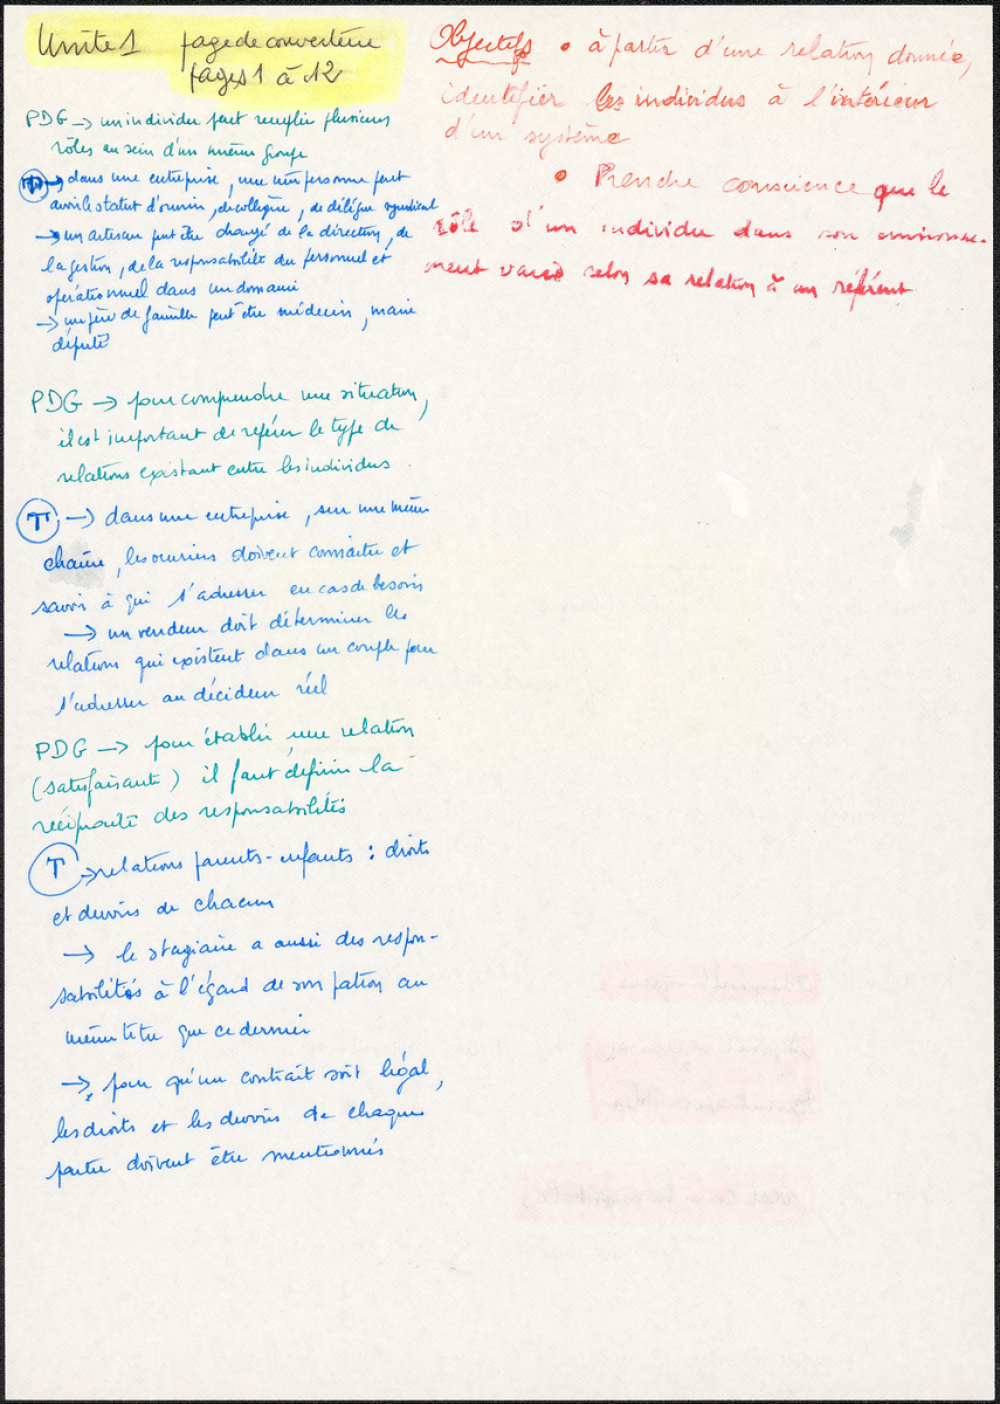 Unité 1 page de couverture
pages 1 à 12
PDG → un individu peut remplir plusieurs
rôles au sein d'un même groupe
T → dans une entreprise, une même personne peut
avoir le statut d'ouvrier, de collègue, de délégué syndical
→ un artisan peut être chargé de la direction, de
la gestion, de la responsabilité du personnel et
opérationnel dans un domaine
→ un père de famille peut être médecin, maire
député
PDG → pour comprendre une situation,
il est important de repérer le type de
relations existant entre les individus.
T → dans une entreprise, sur une même
chaîne, les ouvriers doivent connaître et
savoir à qui s'adresser en cas de besoin
→ un vendeur doit déterminer les
relations qui existent dans un couple pour
s'adresser au décideur réel
PDG → pour établir une relation
(satisfaisante) il faut définir la
réciprocité des responsabilités
T → relations parents-enfants : droits
et devoirs de chacun
→ le stagiaire a aussi des respon-
sabilités à l'égard de son patron au
même titre que ce dernier
→ pour qu'un contrait soit légal,
les droits et les devoirs de chaque
partie doivent être mentionnés
Objectifs • à partir d'une relation donnée,
identifier les individus à l'intérieur
d'un système
• Prendre conscience que le
rôle d'un individu dans son environne-
ment varie selon sa relation à un référent